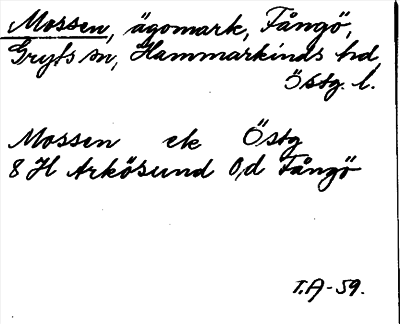 Mossen, ägomark, Fångö,
Gryts sn, Hammarkinds hd,
Östg. l.
Mossen ek Östg
8 H Arkösund 0,d Fångö
T.A-59.